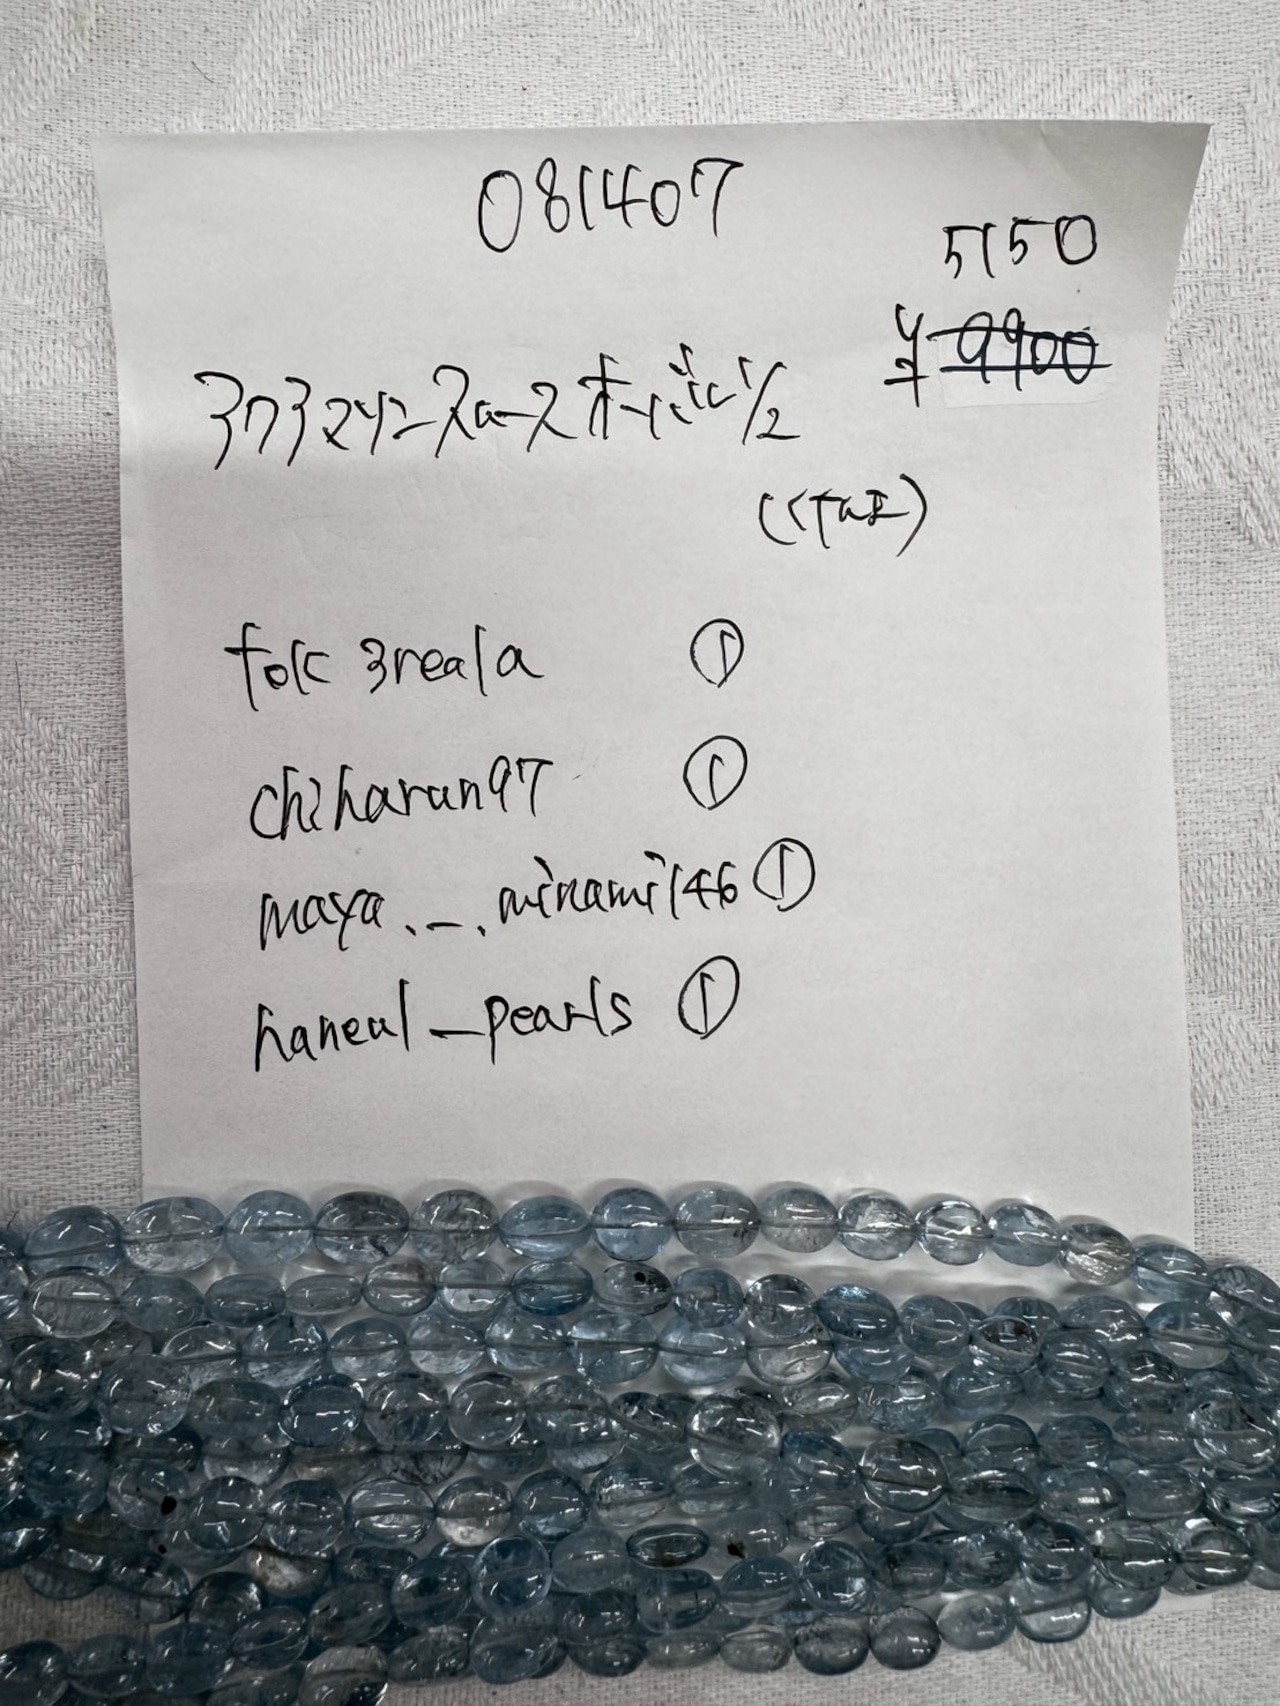 081407
5150
¥9900
アクアマリンスムースオーバル 1/2
fok3reala ①
chiharun97 ①
maya._.minami146 ①
haneul_pearls ①